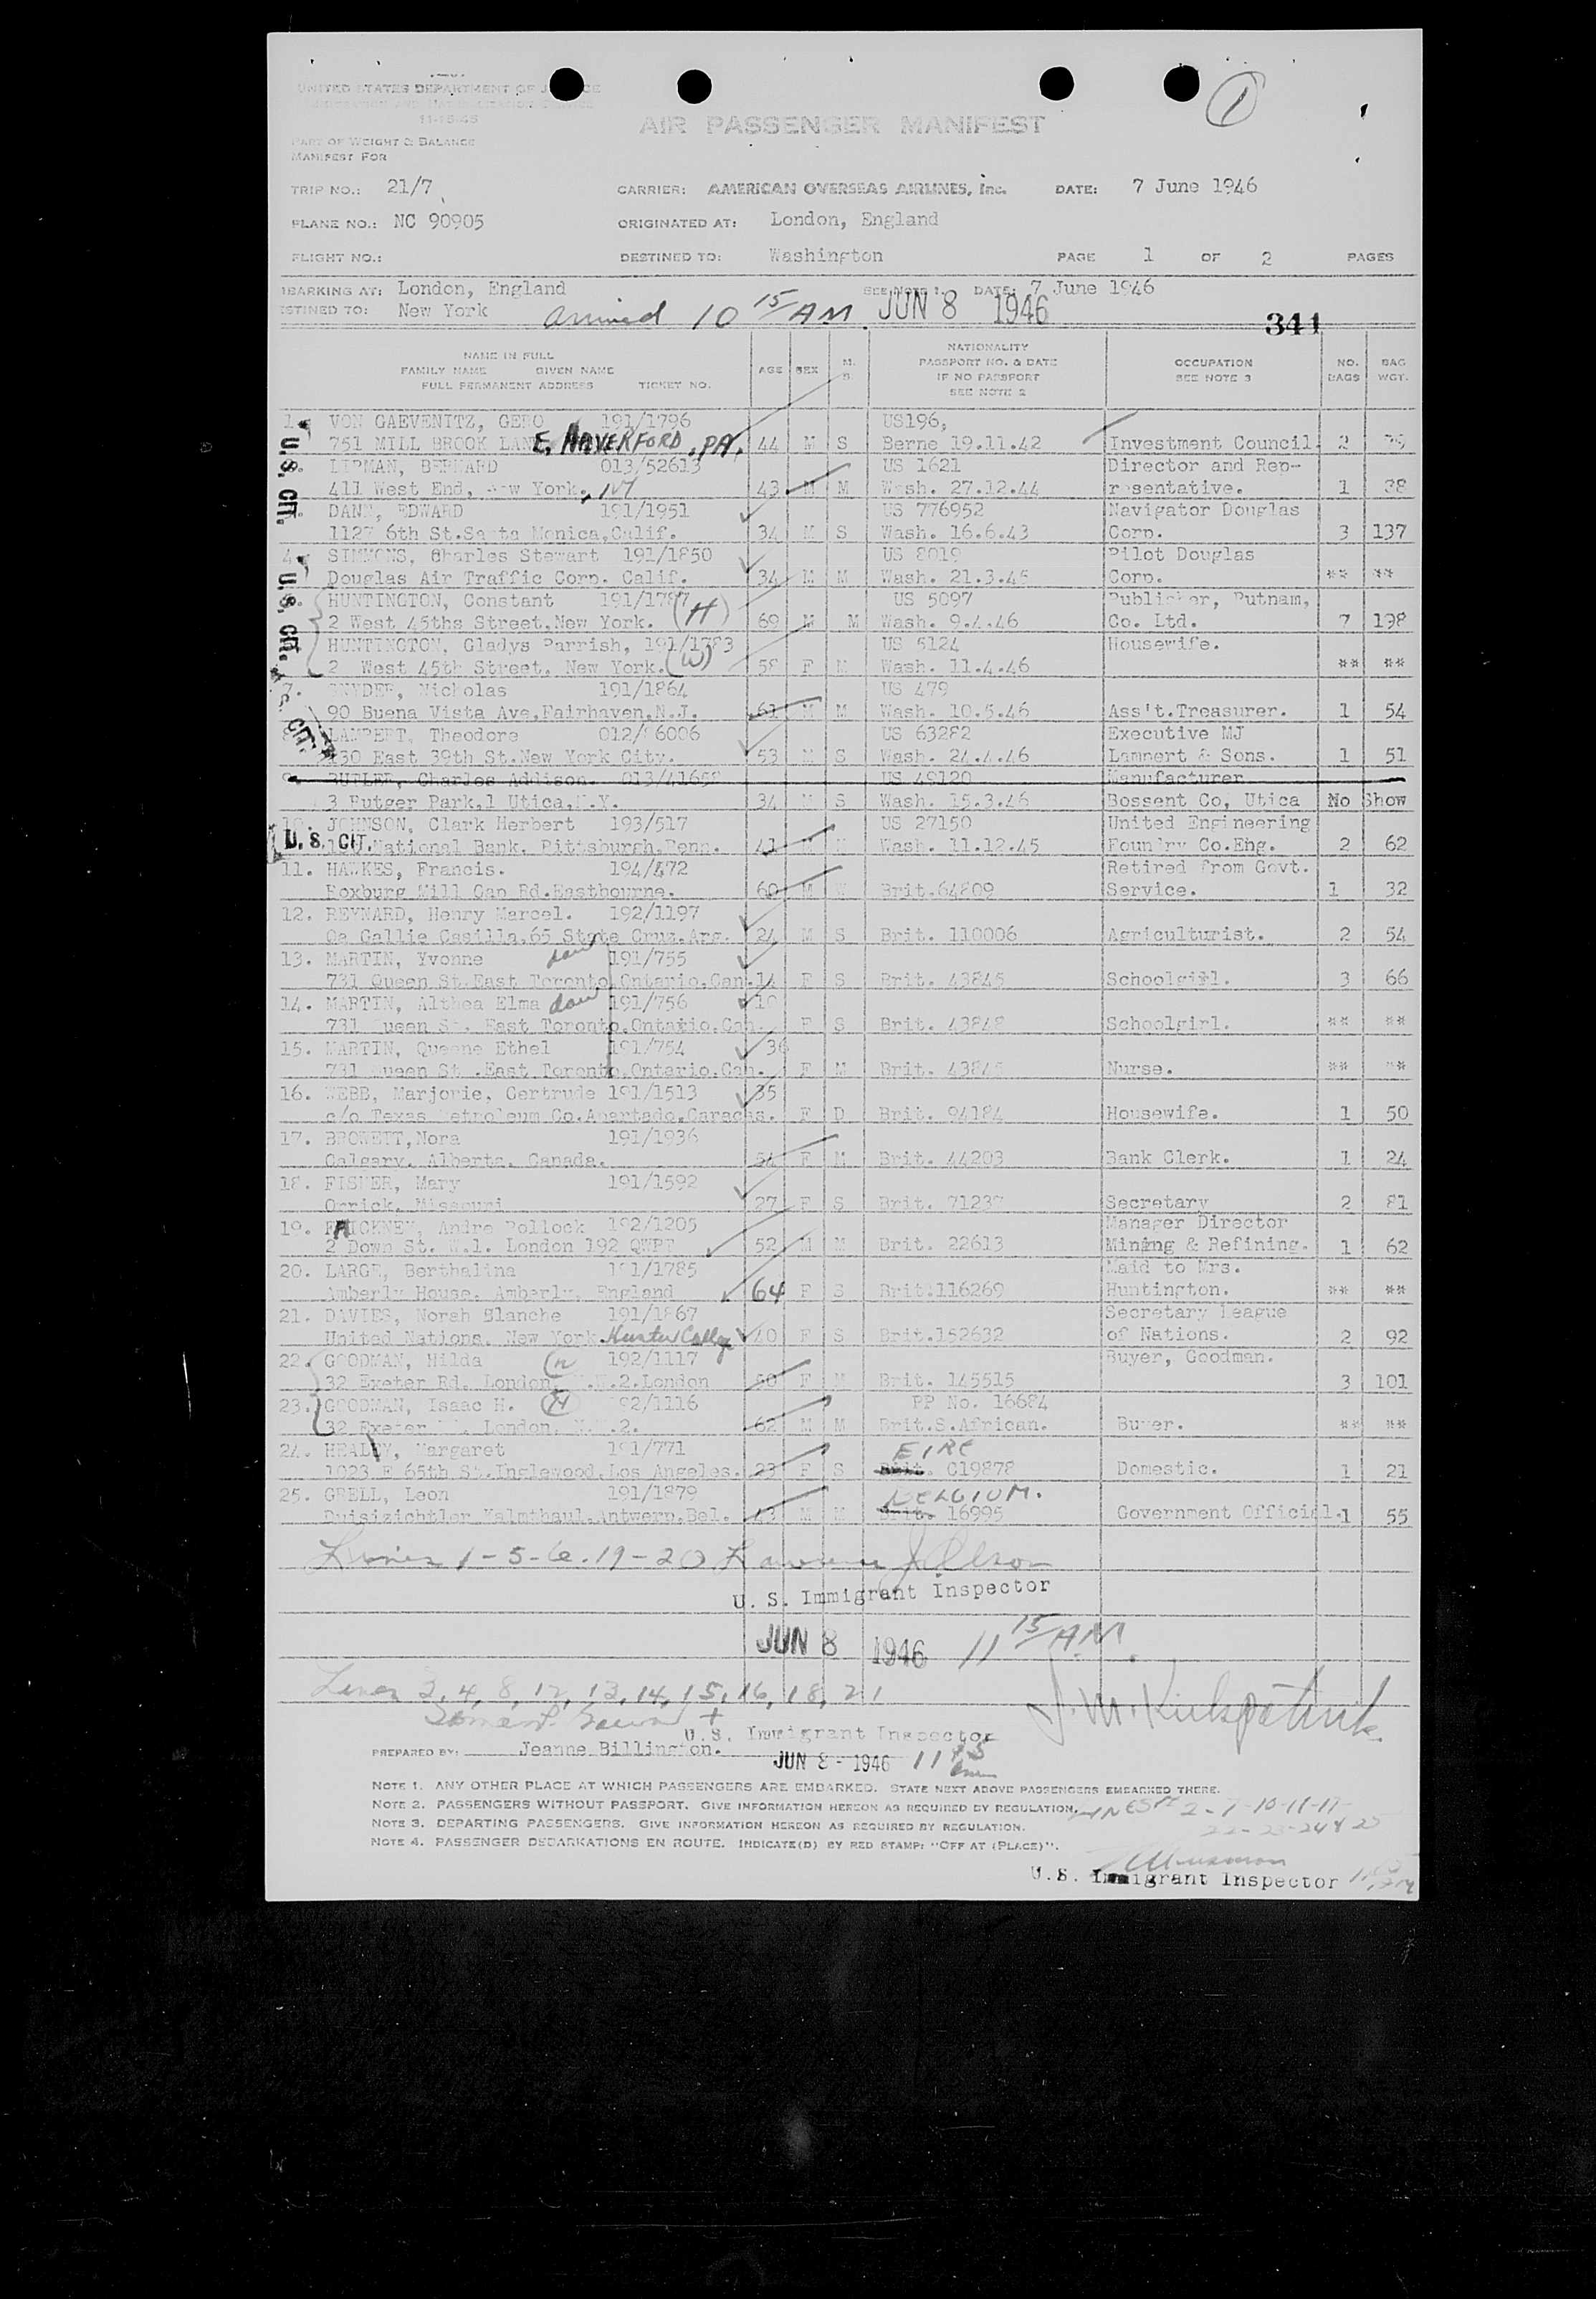 UNITED STATES DEPARTMENT OF JUSTICE
11-15-45
AIR PASSENGER MANIFEST
1
PART OF WEIGHT & BALANCE
MANIFEST FOR
TRIP NO.: 21/7 CARRIER: AMERICAN OVERSEAS AIRLINES, Inc. DATE: 7 June 1946
PLANE NO.: NC 90905 ORIGINATED AT: London, England
FLIGHT NO.: DESTINED TO: Washington PAGE 1 OF 2 PAGES
BARKING AT: London, England SEE NOTE 1. DATE: 7 June 1946
STINED TO: New York arrived 10 15/AM JUN 8 1946
341
NAME IN FULL
FAMILY NAME GIVEN NAME
FULL PERMANENT ADDRESS TICKET NO. AGE SEX M. S. NATIONALITY PASSPORT NO. & DATE IF NO PASSPORT SEE NOTE 2 OCCUPATION SEE NOTE 3 NO. BAGS BAG WGT.
1. VON GAEVENITZ, GERO 191/1796 US196,
751 MILL BROOK LANE, HAVERFORD, PA. 44 M S Berne 19.11.42 Investment Council. 2
U.S. CIT.
LIPMAN, BERNARD 013/52613 US 1621 Director and Rep-
411 West End, New York, NY 43 M M Wash. 27.12.44 resentative. 1 38
DANN, EDWARD 191/1951 US 776952 Navigator Douglas
1127 6th St.Santa Monica,Calif. 34 M S Wash. 16.6.43 Corp. 3 137
4. SIMMONS, Charles Stewart 191/1850 US 8019 Pilot Douglas
Douglas Air Traffic Corp. Calif. 34 M M Wash. 21.3.45 Corp. ** **
U.S. CIT.
HUNTINGTON, Constant 191/1787 US 5097 Publisher, Putnam,
2 West 45ths Street,New York. (H) 69 M M Wash. 9.4.46 Co. Ltd. 7 198
HUNTINGTON, Gladys Parrish, 191/1783 US 5124 Housewife.
2 West 45th Street, New York. (W) 58 F M Wash. 11.4.46 ** **
7. SNYDER, Nicholas 191/1864 US 479
90 Buena Vista Ave,Fairhaven,N.J. 61 M M Wash. 10.5.46 Ass't.Treasurer. 1 54
8. LAMPERT, Theodore 012/86006 US 63282 Executive MJ
130 East 39th St.New York City. 53 M S Wash. 24.4.46 Lampert & Sons. 1 51
9. BUTLER, Charles Addison. 013/41658 US 49120 Manufacturer
3 Rutger Park,1 Utica,N.Y. 34 M S Wash. 15.3.46 Bossent Co, Utica No Show
10. JOHNSON, Clark Herbert 193/517 US 27150 United Engineering
U.S. CIT. National Bank, Pittsburgh,Penn. 41 M M Wash. 11.12.45 Foundry Co.Eng. 2 62
11. HAWKES, Francis. 194/472 Retired from Govt.
Roxburg Mill Gap Rd.Eastbourne. 60 M W Brit.64809 Service. 1 32
12. REYNARD, Henry Marcel. 192/1197
Oa Gallie Casilla,65 State Cruz.Arg. 24 M S Brit. 110006 Agriculturist. 2 54
13. MARTIN, Yvonne dau 191/755
731 Queen St.East Toronto,Ontario,Can. 14 F S Brit. 43845 Schoolgirl. 3 66
14. MARTIN, Althea Elma dau 191/756 10
731 Queen St. East Toronto,Ontario,Can. F S Brit. 43848 Schoolgirl. ** **
15. MARTIN, Queene Ethel 191/754 36
731 Queen St .East Toronto,Ontario,Can. F M Brit. Nurse. ** **
16. WEBB, Marjorie, Gertrude 191/1513 35
c/o Texas Petroleum Co.Apartado,Caracas. F D Brit. 94184 Housewife. 1 50
17. BROWETT,Nora 191/1936
Calgary, Alberta, Canada. 54 F M Brit. 44203 Bank Clerk. 1 24
18. FISHER, Mary 191/1592
Orrick, Missouri 27 F S Brit. Secretary 2 81
19. Andre Pollock 192/1205 Manager Director
2 Down St. W.1. London 192 QWPT 52 M M Brit. 22613 Mining & Refining. 1 62
20. LARGE, Berthalina 191/1785 Maid to Mrs.
Amberly House, Amberly, England 64 F S Brit.116269 Huntington. ** **
21. DAVIES, Norah Blanche 191/1867 Secretary League
United Nations, New York Hunter College 40 F S Brit.152632 of Nations. 2 92
22. GOODMAN, Hilda (W 192/1117 Buyer, Goodman.
32 Exeter Rd. London, N.W.2.London 60 F M Brit. 145515 3 101
23. GOODMAN, Isaac H. (H) 192/1116 PP No. 16684
32 Exeter Rd. London, N.W.2. 62 M M Brit.S.African. Buyer. ** **
24. HEALY, Margaret 191/771 EIRE
1023 E 65th St.Inglewood,Los Angeles. 23 F S Brit. C19878 Domestic. 1 21
25. GRELL, Leon 191/1879 BELGIUM.
Kalmthaul,Antwerp,Bel. 43 M M Brit. 16995 Government Official. 1 55
Lines 1-5-6-19-20 Lawrence J. Olson
U. S. Immigrant Inspector
JUN 8 1946 11 15/AM.
Lines 3, 4, 8, 12, 13, 14, 15, 16, 18, 21 J. M. Kirkpatrick
U.S. Immigrant Inspector
PREPARED BY: Jeanne Billington. JUN 8 - 1946 11 45 am
NOTE 1. ANY OTHER PLACE AT WHICH PASSENGERS ARE EMBARKED. STATE NEXT ABOVE PASSENGERS EMBARKED THERE.
NOTE 2. PASSENGERS WITHOUT PASSPORT. GIVE INFORMATION HEREON AS REQUIRED BY REGULATION.
LINES 2-7-10-11-17-
NOTE 3. DEPARTING PASSENGERS. GIVE INFORMATION HEREON AS REQUIRED BY REGULATION.
22-23-24 & 25
NOTE 4. PASSENGER DEBARKATIONS EN ROUTE. INDICATE(D) BY RED STAMP: "OFF AT (PLACE)".
U.S. Immigrant Inspector